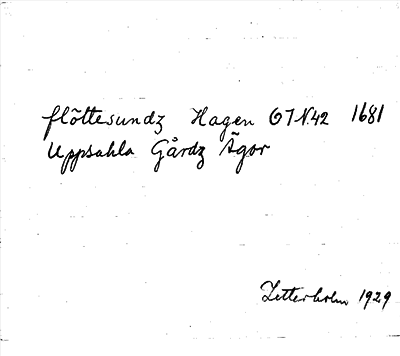 flöttesundz Hagen GIN42 1681
Uppsahla Gårdz Ägor
Zetterholm 1929